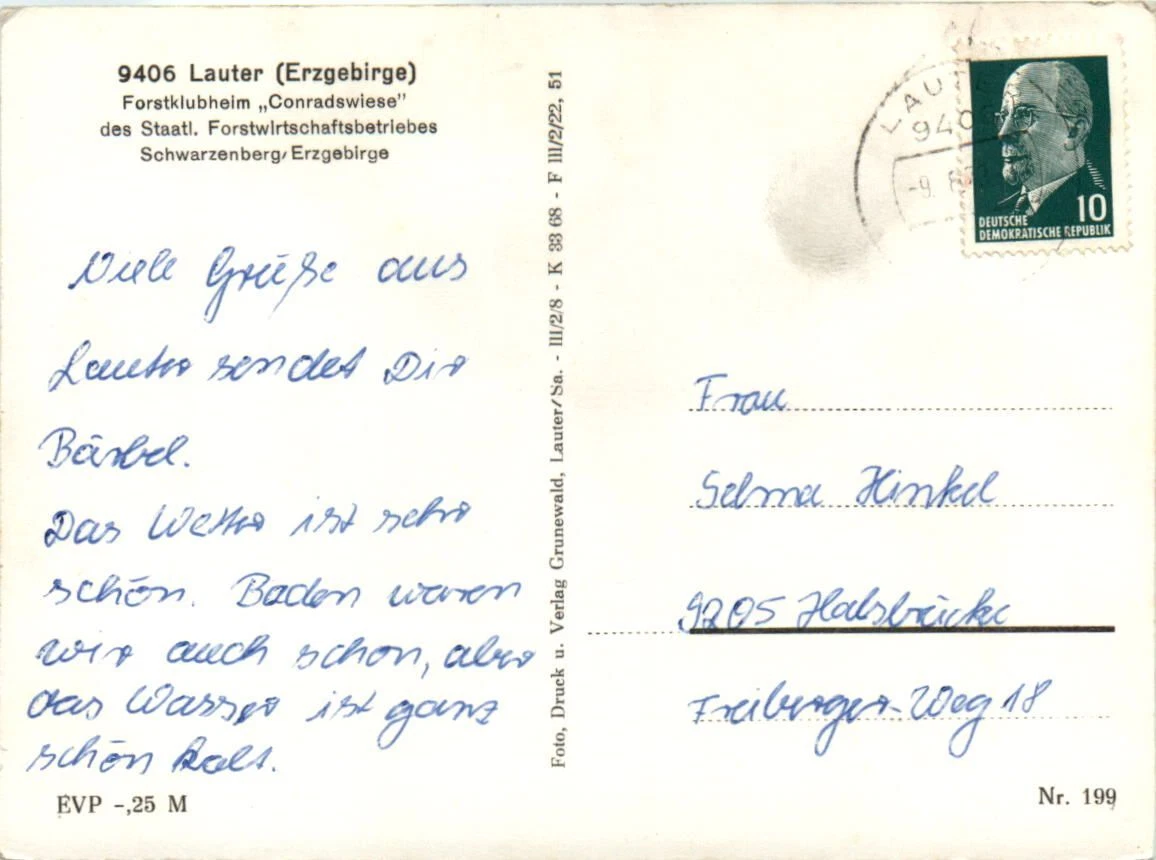 9406 Lauter (Erzgebirge)
Forstklubheim „Conradswiese”
des Staatl. Forstwirtschaftsbetriebes
Schwarzenberg/Erzgebirge
Viele Grüße aus
Lauter sendet Dir
Bärbel.
Das Wetter ist sehr
schön. Baden waren
wir auch schon, aber
das Wasser ist ganz
schön kalt.
EVP -,25 M
Foto, Druck u. Verlag Grunewald, Lauter/Sa. - III/2/8 - K 33 68 - F III/2/22, 51
LAU
940
-9.
10
DEUTSCHE
DEMOKRATISCHE REPUBLIK
Frau
Selma Hinkel
9205 Halsbrücke
Freiberger-Weg 18
Nr. 199